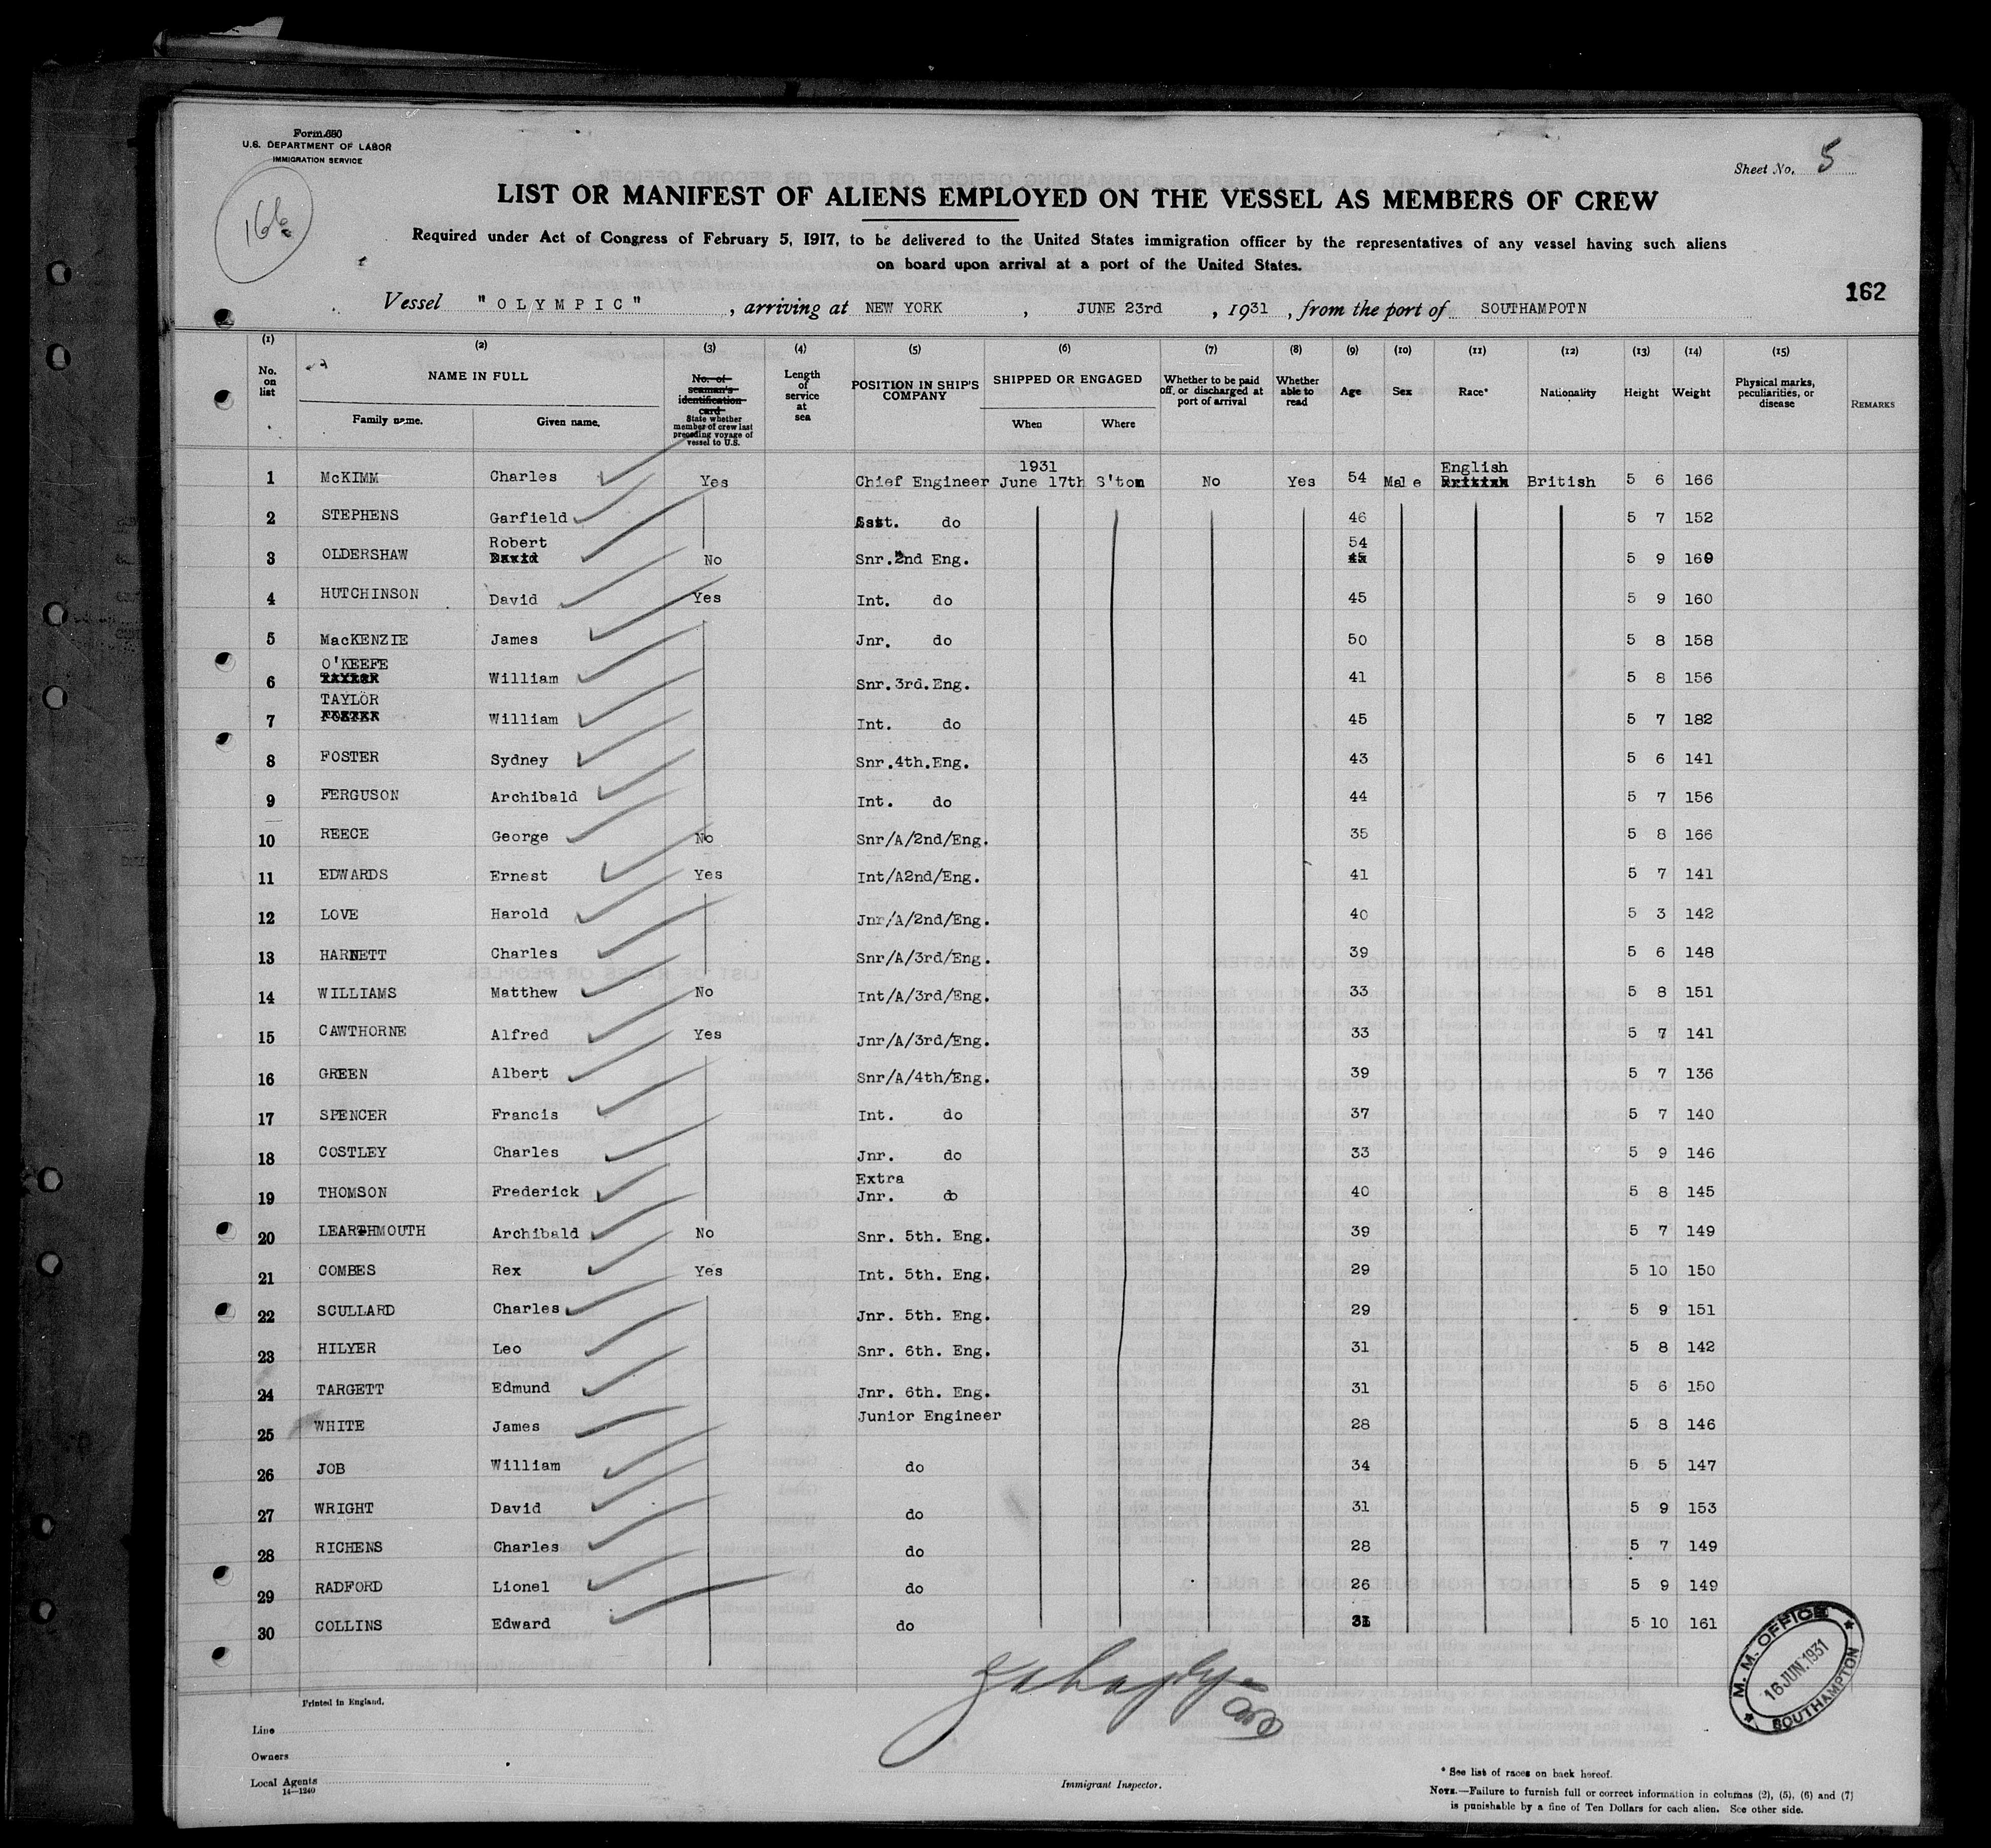 Form 680
U.S. DEPARTMENT OF LABOR
IMMIGRATION SERVICE
Sheet No. 5
166
LIST OR MANIFEST OF ALIENS EMPLOYED ON THE VESSEL AS MEMBERS OF CREW
Required under Act of Congress of February 5, 1917, to be delivered to the United States immigration officer by the representatives of any vessel having such aliens
on board upon arrival at a port of the United States.
162
Vessel "OLYMPIC", arriving at NEW YORK, JUNE 23rd, 1931, from the port of SOUTHAMPOTN
(1) (2) (3) (4) (5) (6) (7) (8) (9) (10) (11) (12) (13) (14) (15)
No. on list
NAME IN FULL
Family name. Given name.
No. of seaman's identification card
State whether member of crew last preceding voyage of vessel to U.S.
Length of service at sea
POSITION IN SHIP'S COMPANY
SHIPPED OR ENGAGED
When Where
Whether to be paid off, or discharged at port of arrival
Whether able to read
Age
Sex
Race*
Nationality
Height
Weight
Physical marks, peculiarities, or disease
REMARKS
1931 English
1 McKIMM Charles Yes Chief Engineer June 17th S'ton No Yes 54 Male British British 5 6 166
2 STEPHENS Garfield Asst. do 46 5 7 152
Robert 54
3 OLDERSHAW David No Snr. 2nd Eng. 45 5 9 169
4 HUTCHINSON David Yes Int. do 45 5 9 160
5 MacKENZIE James Jnr. do 50 5 8 158
O'KEEFE
6 TAYLOR William Snr.3rd.Eng. 41 5 8 156
TAYLOR
7 FOSTER William Int. do 45 5 7 182
8 FOSTER Sydney Snr.4th.Eng. 43 5 6 141
9 FERGUSON Archibald Int. do 44 5 7 156
10 REECE George No Snr/A/2nd/Eng. 35 5 8 166
11 EDWARDS Ernest Yes Int/A2nd/Eng. 41 5 7 141
12 LOVE Harold Jnr/A/2nd/Eng. 40 5 3 142
13 HARNETT Charles Snr/A/3rd/Eng. 39 5 6 148
14 WILLIAMS Matthew No Int/A/3rd/Eng. 33 5 8 151
15 CAWTHORNE Alfred Yes Jnr/A/3rd/Eng. 33 5 7 141
16 GREEN Albert Snr/A/4th/Eng. 39 5 7 136
17 SPENCER Francis Int. do 37 5 7 140
18 COSTLEY Charles Jnr. do 33 5 9 146
Extra
19 THOMSON Frederick Jnr. do 40 5 8 145
20 LEARTHMOUTH Archibald No Snr. 5th. Eng. 39 5 7 149
21 COMBES Rex Yes Int. 5th. Eng. 29 5 10 150
22 SCULLARD Charles Jnr. 5th. Eng. 29 5 9 151
23 HILYER Leo Snr. 6th. Eng. 31 5 8 142
24 TARGETT Edmund Jnr. 6th. Eng. 31 5 6 150
25 WHITE James Junior Engineer 28 5 8 146
26 JOB William do 34 5 5 147
27 WRIGHT David do 31 5 9 153
28 RICHENS Charles do 28 5 7 149
29 RADFORD Lionel do 26 5 9 149
30 COLLINS Edward do 5 10 161
M. M. OFFICE
16 JUN. 1931
SOUTHAMPTON
Printed in England.
Line
Owners
Local Agents
14—1240
Immigrant Inspector.
* See list of races on back hereof.
NOTE.—Failure to furnish full or correct information in columns (2), (5), (6) and (7)
is punishable by a fine of Ten Dollars for each alien. See other side.